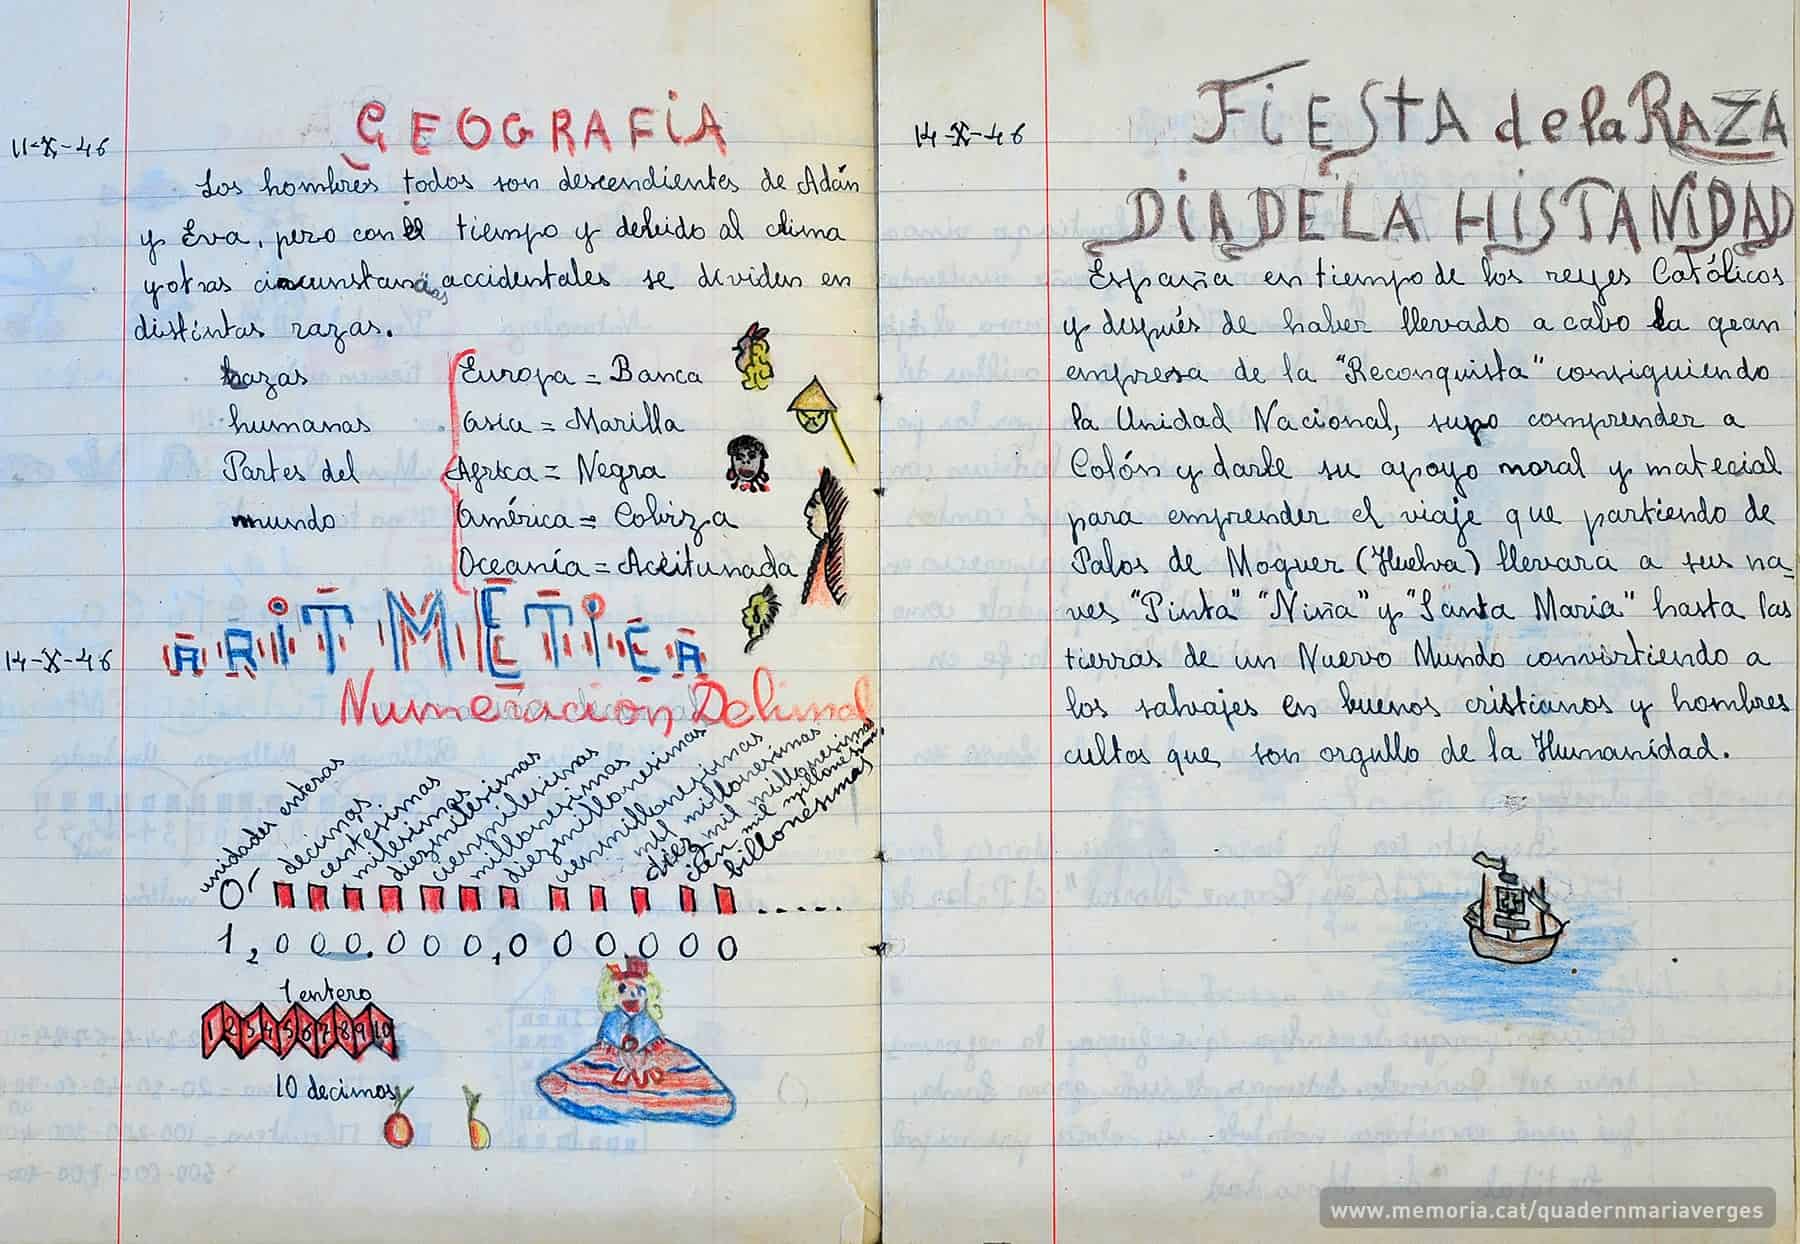 11-X-46
GEOGRAFÍA
Los hombres todos son descendientes de Adán
y Eva, pero con el tiempo y debido al clima
y otras circunstancias accidentales se dividen en
distintas razas.
Razas
humanas
Partes del
mundo
Europa = Banca
Asia = Marilla
Africa = Negra
América = Cobriza
Oceanía = Aceitunada
14-X-46
ARITMETICA
Numeración Decimal
unidades enteras
decimas
centesimas
milesimas
diezmilesimas
cienmilesimas
millonesimas
diezmillonesimas
cienmillonesimas
mil millonesimas
diez mil millonesimas
cien mil millonesimas
billonesimas
0' ......
1,000.000,000000
1 entero
1 2 3 4 5 6 7 8 9 10
10 decimos
14-X-46
FIESTA de la RAZA
DIA DE LA HISTANIDAD
España en tiempo de los reyes Católicos
y después de haber llevado a cabo la gean
empresa de la "Reconquista" consiguiendo
la Unidad Nacional, supo comprender a
Colón y darle su apoyo moral y matecial
para emprender el viaje que partiendo de
Palos de Moguer (Huelva) llevara a sus na-
ves "Pinta" "Niña" y "Santa Maria" hasta las
tierras de un Nuevo Mundo convirtiendo a
los salvajes en buenos cristianos y hombres
cultos que son orgullo de la Humanidad.
www.memoria.cat/quadernmariaverges